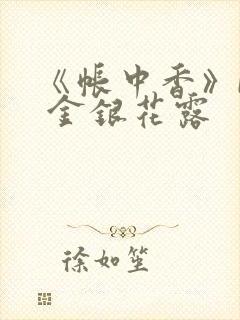 《帳中香》
金銀花露
徐如笙